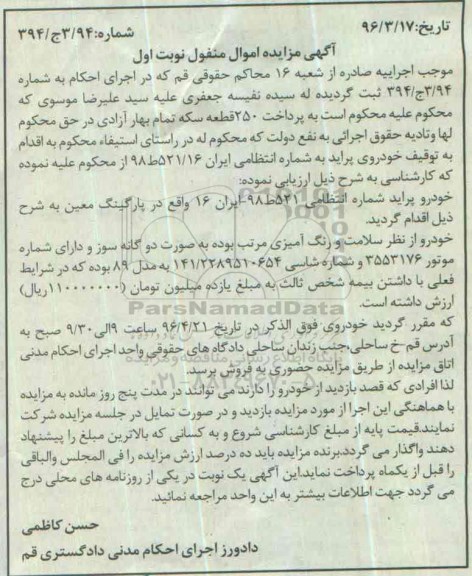 تاریخ:۹۶/۳/۱۷
شماره:۳/۹۴ج/۳۹۴
آگهی مزایده اموال منقول نوبت اول
موجب اجراییه صادره از شعبه ۱۶ محاکم حقوقی قم که در اجرای احکام به شماره
۳/۹۴ج/۳۹۴ ثبت گردیده له سیده نفیسه جعفری علیه سید علیرضا موسوی که
محکوم علیه محکوم است به پرداخت ۲۵۰قطعه سکه تمام بهار آزادی در حق محکوم
لها وتادیه حقوق اجرائی به نفع دولت که محکوم له در راستای استیفاء محکوم به اقدام
به توقیف خودروی پراید به شماره انتظامی ایران ۵۲۱/۱۶ط۹۸ از محکوم علیه نموده
که کارشناسی به شرح ذیل ارزیابی نموده:
خودرو پراید شماره انتظامی ۵۲۱ط۹۸-ایران ۱۶ واقع در پارگینگ معین به شرح
ذیل اقدام گردید.
خودرو از نظر سلامت و رنگ آمیزی مرتب بوده به صورت دو گانه سوز و دارای شماره
موتور ۳۵۵۳۱۷۶ و شماره شاسی ۱۴۱/۲۲۸۹۵۱۰۶۵۴ به مدل ۸۹ بوده که در شرایط
فعلی با داشتن بیمه شخص ثالث به مبلغ یازده میلیون تومان (۱۱۰۰۰۰۰۰۰ریال)
ارزش داشته است.
ParsNamadData
که مقرر گردید خودروی فوق الذکر در تاریخ ۹۶/۴/۲۱ ساعت ۹الی ۹/۳۰ صبح به
آدرس قم-خ ساحلی،جنب زندان ساحلی دادگاه های حقوقی واحد اجرای احکام مدنی
اتاق مزایده از طریق مزایده حضوری به فروش برسد.
لذا افرادی که قصد بازدید از خودرو را دارند می توانند در مدت پنج روز مانده به مزایده
با هماهنگی این اجرا از مورد مزایده بازدید و در صورت تمایل در جلسه مزایده شرکت
نمایند.قیمت پایه از مبلغ کارشناسی شروع و به کسانی که بالاترین مبلغ را پیشنهاد
دهند واگذار می گردد.برنده مزایده باید ده درصد ارزش مزایده را فی المجلس والباقی
را قبل از یکماه پرداخت نماید.این آگهی یک نوبت در یکی از روزنامه های محلی درج
می گردد جهت اطلاعات بیشتر به این واحد مراجعه نمائید.
حسن کاظمی
دادورز اجرای احکام مدنی دادگستری قم